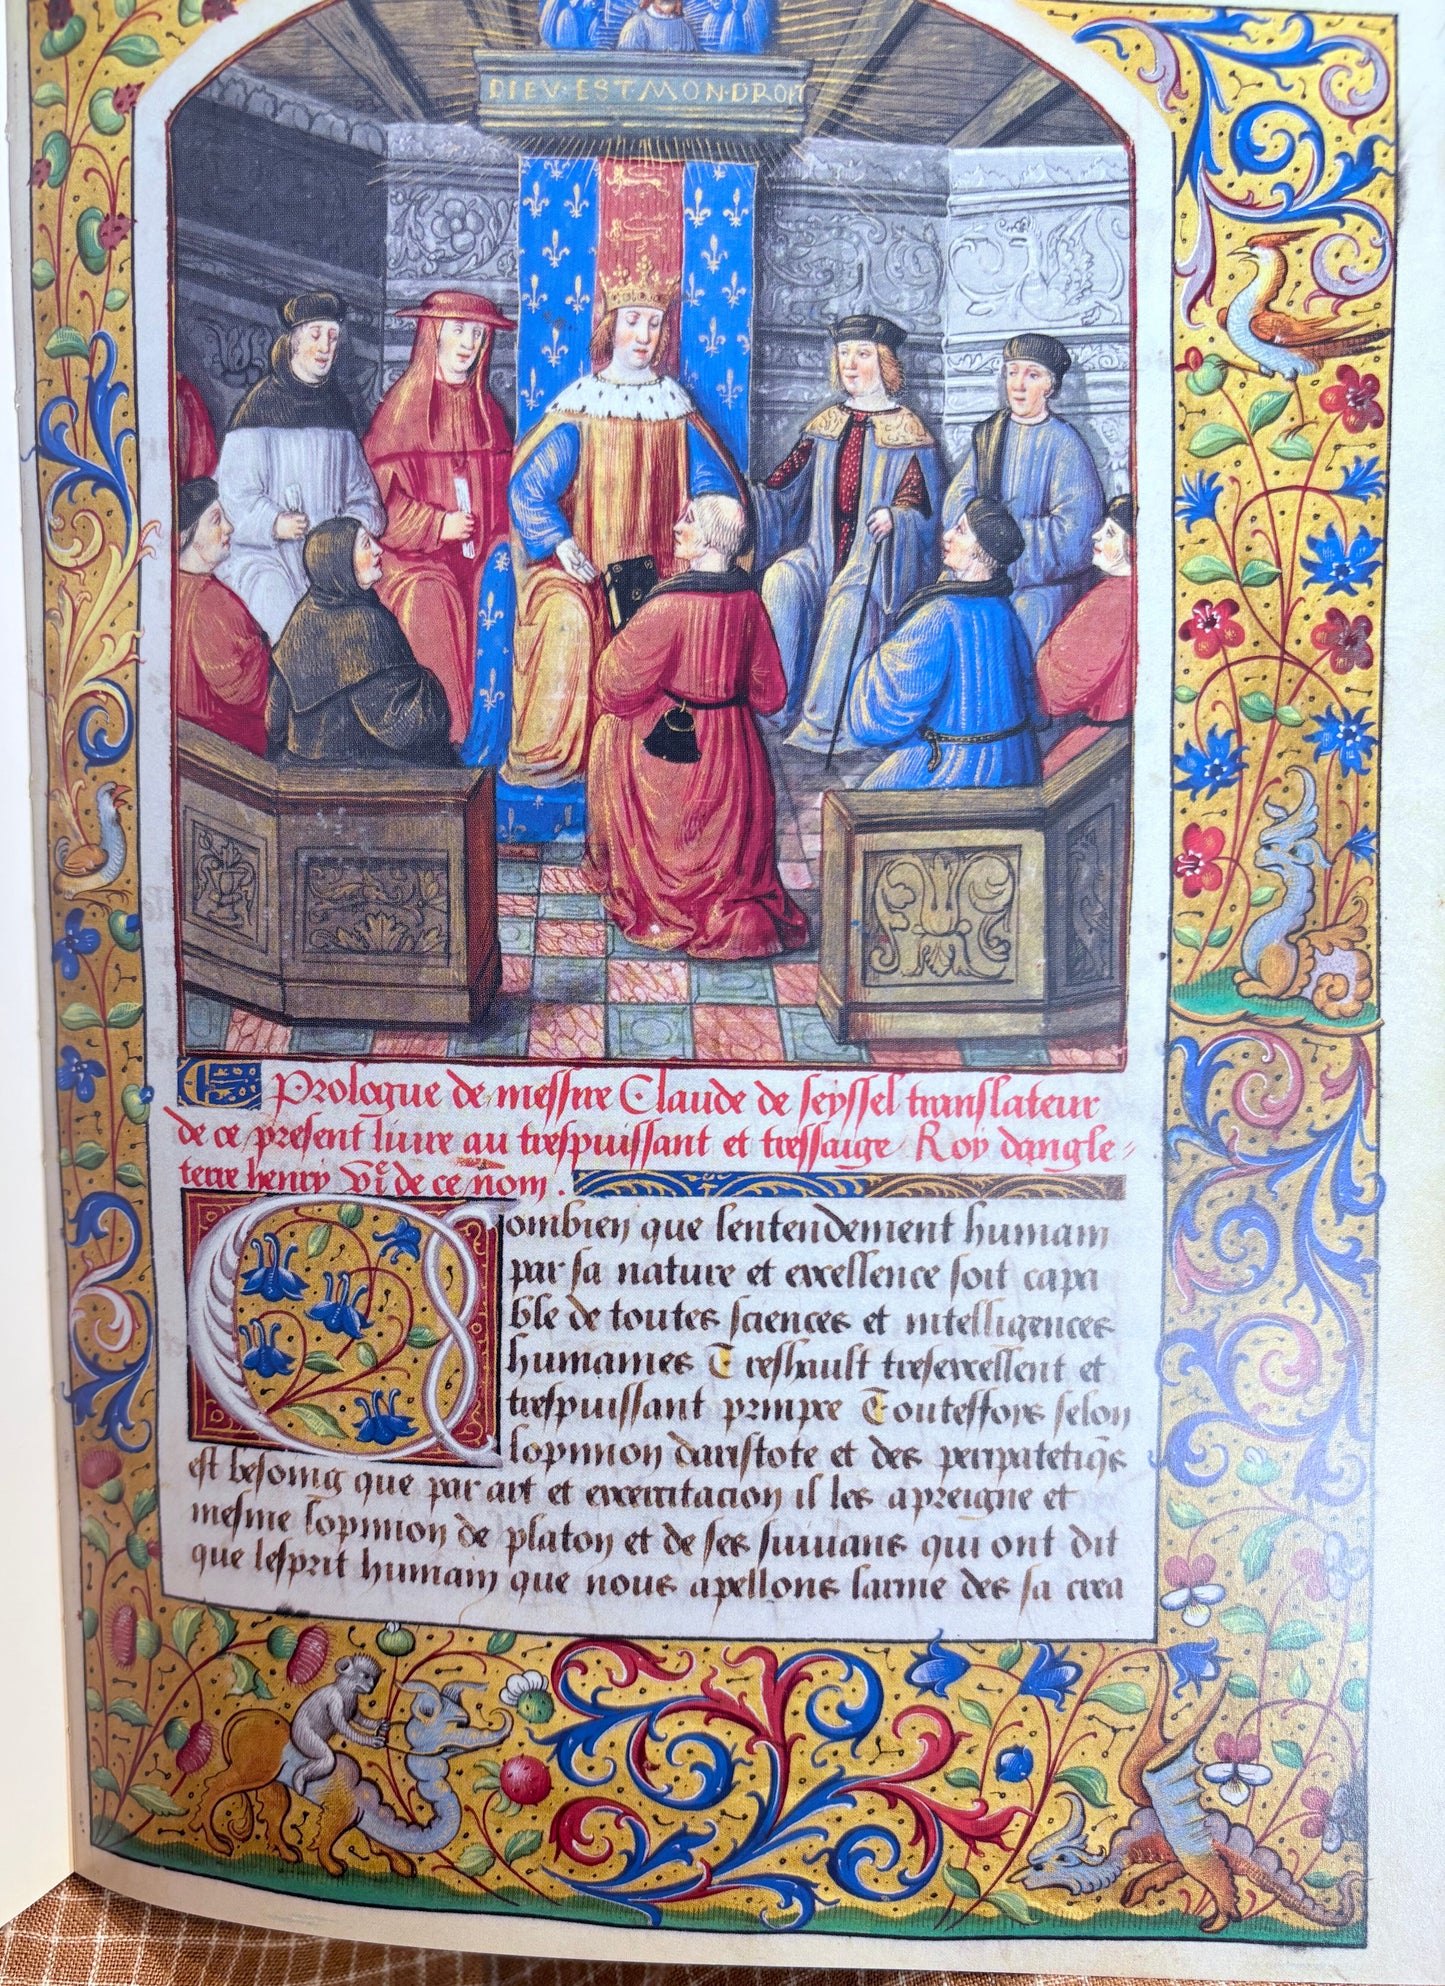 DIEV·EST MON·DROIT
Prologue de messire Claude de seyssel translateur
de ce present liure au trespuissant et tressaige Roy dangle=
terre henry de ce nom.
Combien que lentendement humain
par sa nature et excellence soit capa
ble de toutes sciences et intelligences
humaines Treshault tresexcellent et
trespuissant prinpce Toutesfois selon
lopinion daristote et des peripatetiqs
est besoing que par art et exercitacion il les apreigne et
mesme lopinion de platon et de ses suiuans qui ont dit
que lesprit humain que nous apellons larme des sa crea